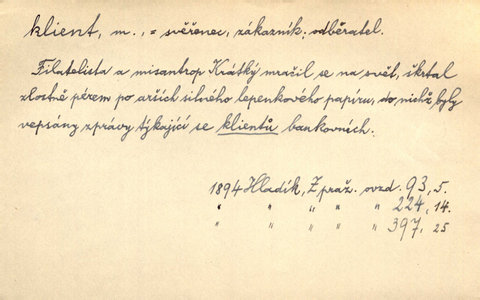 klient, m., = svěřenec, zákazník; odběratel.
Filatelista a misantrop Krátký mračil se na svět, škrtal
zlostně pérem po arších silného lepenkového papíru, do nichž byly
vepsány zprávy týkající se klientů bankovních.
1894 Hladík, Z praž. ovzd. 93, 5.
" " " " " 224, 14.
" " " " " 397, 25